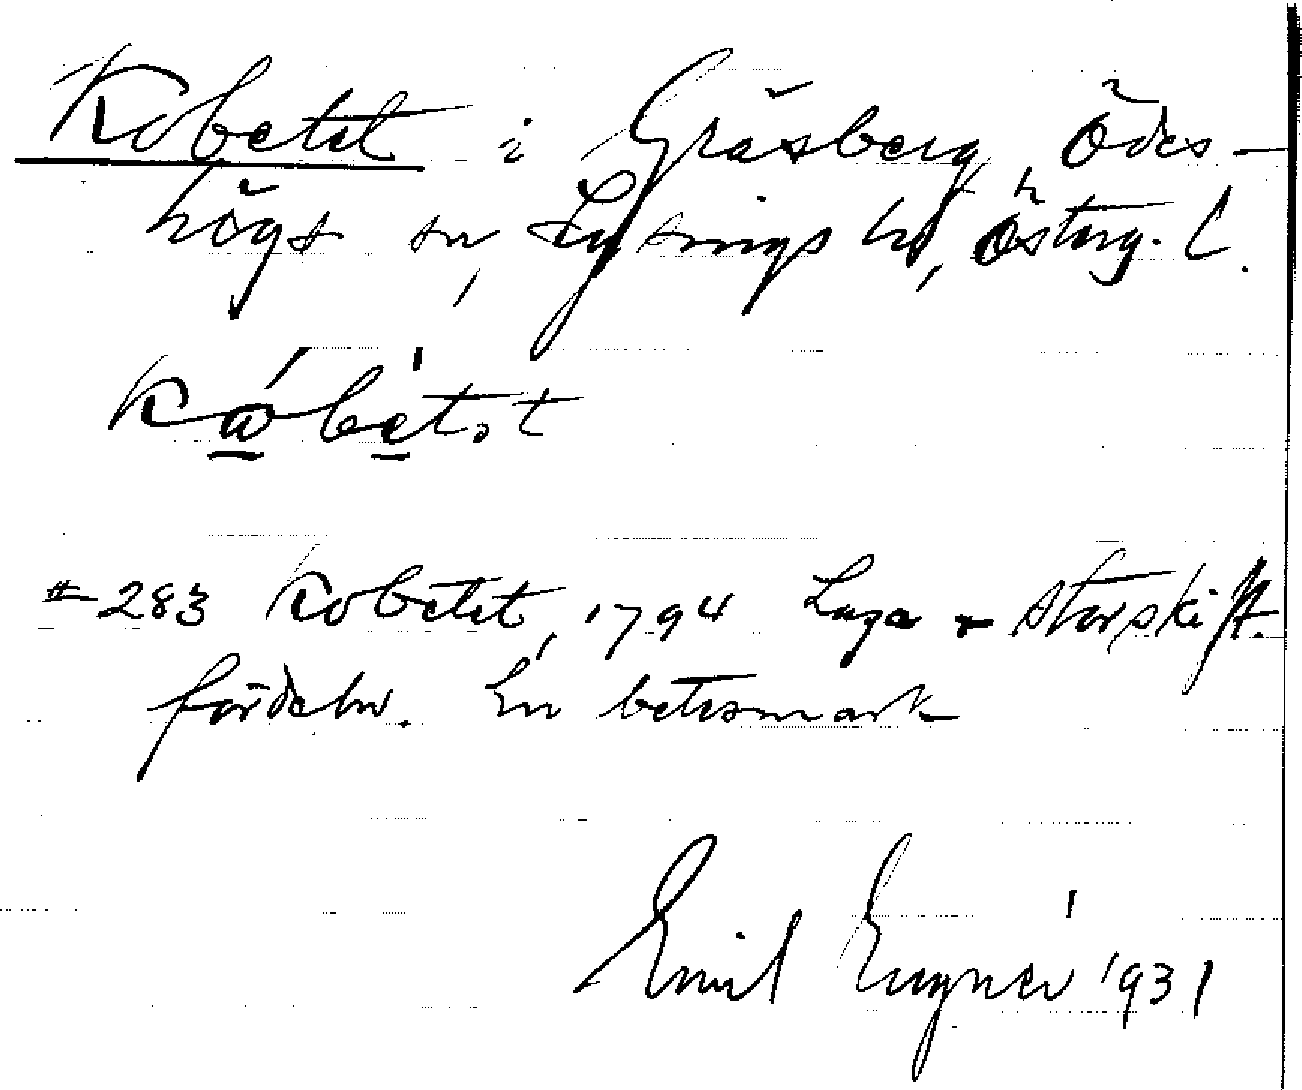 Kobetet i Gräsberg, Ödes-
högs sn, Lysings hd, Österg. l.
Kåbétət
# 283 Kobetet, 1794 Laga Storskift.
fördeln. En betesmark
Emil 1931